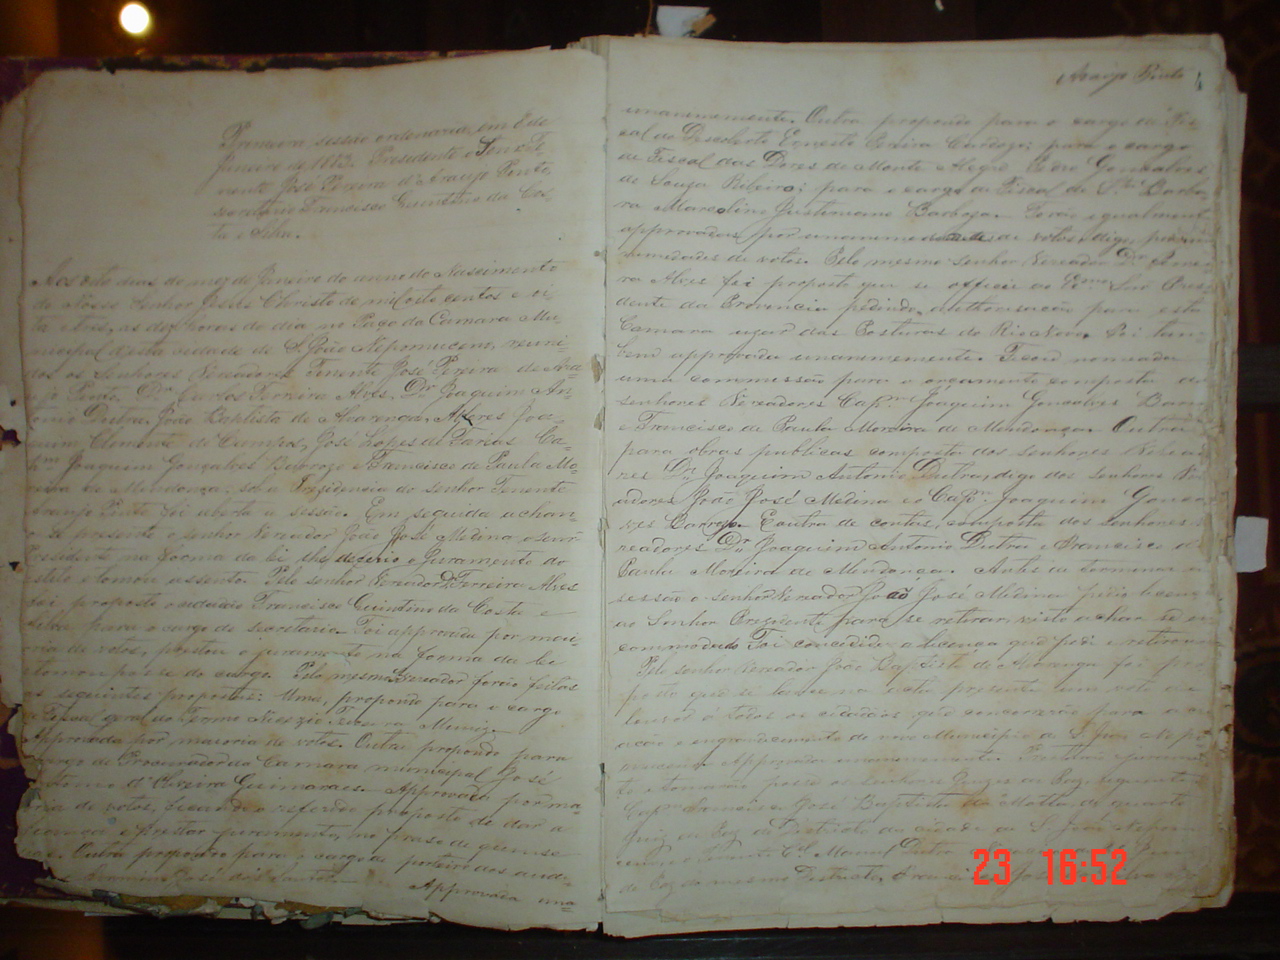 Primeira sessão ordenaria em 8 de
Janeiro de 1883. Presidente o Senr. Te
nente José Pereira d'Araujo Pinto,
secretario Francisco Quintino da Cos
ta e Silva.
Aos oito dias do mez de Janeiro do anno do Nascimento
de Nosso Senhor Jesus Christo de mil oito centos e oi
ta e tres, as dez horas do dia no Paço da Camara Mu
nicipal desta cidade de S. João Nepomuceno, reuni
dos os Senhores Vereadores Tenente José Pereira de Ara
ujo Pinto, Dr. Carlos Ferreira Alves, Dr. Joaquim An
tonio Dutra, João Baptista de Alvarenga, Alferes Joa
quim Clemente de Campos, José Lopes de Farias, Ca
pm. Joaquim Gonçalves Barrozo e Francisco de Paula Mo
reira de Mendonça, sob a Presidencia do senhor Tenente
Araujo Pinto foi aberta a sessão. Em seguida achan
presente o senhor Vereador João José Medina o senr.
Presidente na forma da lei lhe deferio o juramento do
estilo e tomou assento. Pelo senhor Vereador Dr. Ferreira Alves
foi proposto o cidadão Francisco Quintino da Costa e
Silva para o cargo de secretario. Foi approvado por maio
ria de votos, prestou o juramento na forma da lei
e tomou posse do cargo. Pelo mesmo Vereador forão feitas
as seguintes propostas: Uma, propondo para o cargo
Fiscal geral do Termo Teixeira Muniz
Approvada por maioria de votos. Outra propondo para
cargo de Procurador da Camara municipal José
Antonio d'Oliveira Guimaraes. Approvada por ma
ria de votos, ficando o referido proposto de dar a
fiança e prestar juramento, no praso de quinse
Outra propondo para o cargo de porteiro aos audi
José dos Santos Approvada una
Araujo Pinto
unanemente. Outra propondo para o cargo de Fis
cal do Descoberto Ernesto Pereira Cardozo; para o cargo
de Fiscal das Dores de Monte Alegre Pedro Gonçalves
de Souza Ribeiro; para o cargo de Fiscal de Sta. Barba
ra Marcolino Justiniano Barboza. Forão igualment
approvadas por unanemedade de votos, digo, por una
nimedades de votos. Pelo mesmo senhor Vereador Dr. Ferrei
ra Alves foi proposto que se officie ao Exmo. Snr. Pres
dente da Provincia pedindo authorisação para esta
Camara uzar das Posturas do Rio Novo. Foi tam
bem approvada unanemente. Ficou nomeada
uma commissão para o orçamento composta dos
senhores Vereadores Capm. Joaquim Gonçalves Barro
e Francisco de Paula Moreira de Mendonça. Outra
para obras publicas composta dos senhores Verea
res Dr. Joaquim Antonio Dutra, digo dos senhores Ve
adores João José Medina e o Capm. Joaquim Gonça
ves Barrozo. E outra de contas, composta dos senhores
readores Dr. Joaquim Antonio Dutra e Francisco de
Paula Moreira de Mendonça. Antes de terminar a
sessão o senhor Vereador João José Medina pedio licença
ao Senhor Presidente para se retirar, visto achar-se in
commodado. Foi concedida a licença que pedio e retirou
Pelo senhor Vereador João Baptista de Alvarenga foi pro
posto que se lance na acta presente um voto de
louvor á todos os cidadãos que concorrerão para a
ação e engrandecimento do novo Municipio de S. João Nepo
muceno. Approvada unanemente. Prestarão juramen
to e tomarão posse os senhores Juizes de Paz seguintes
Capm. José Baptista da Motta, de quarto
Juiz de Paz do Districto da cidade de S. João Nepom
uceno, o Tenente Cel. Manoel Dutra
de Paz do mesmo Districto,
23 16:52